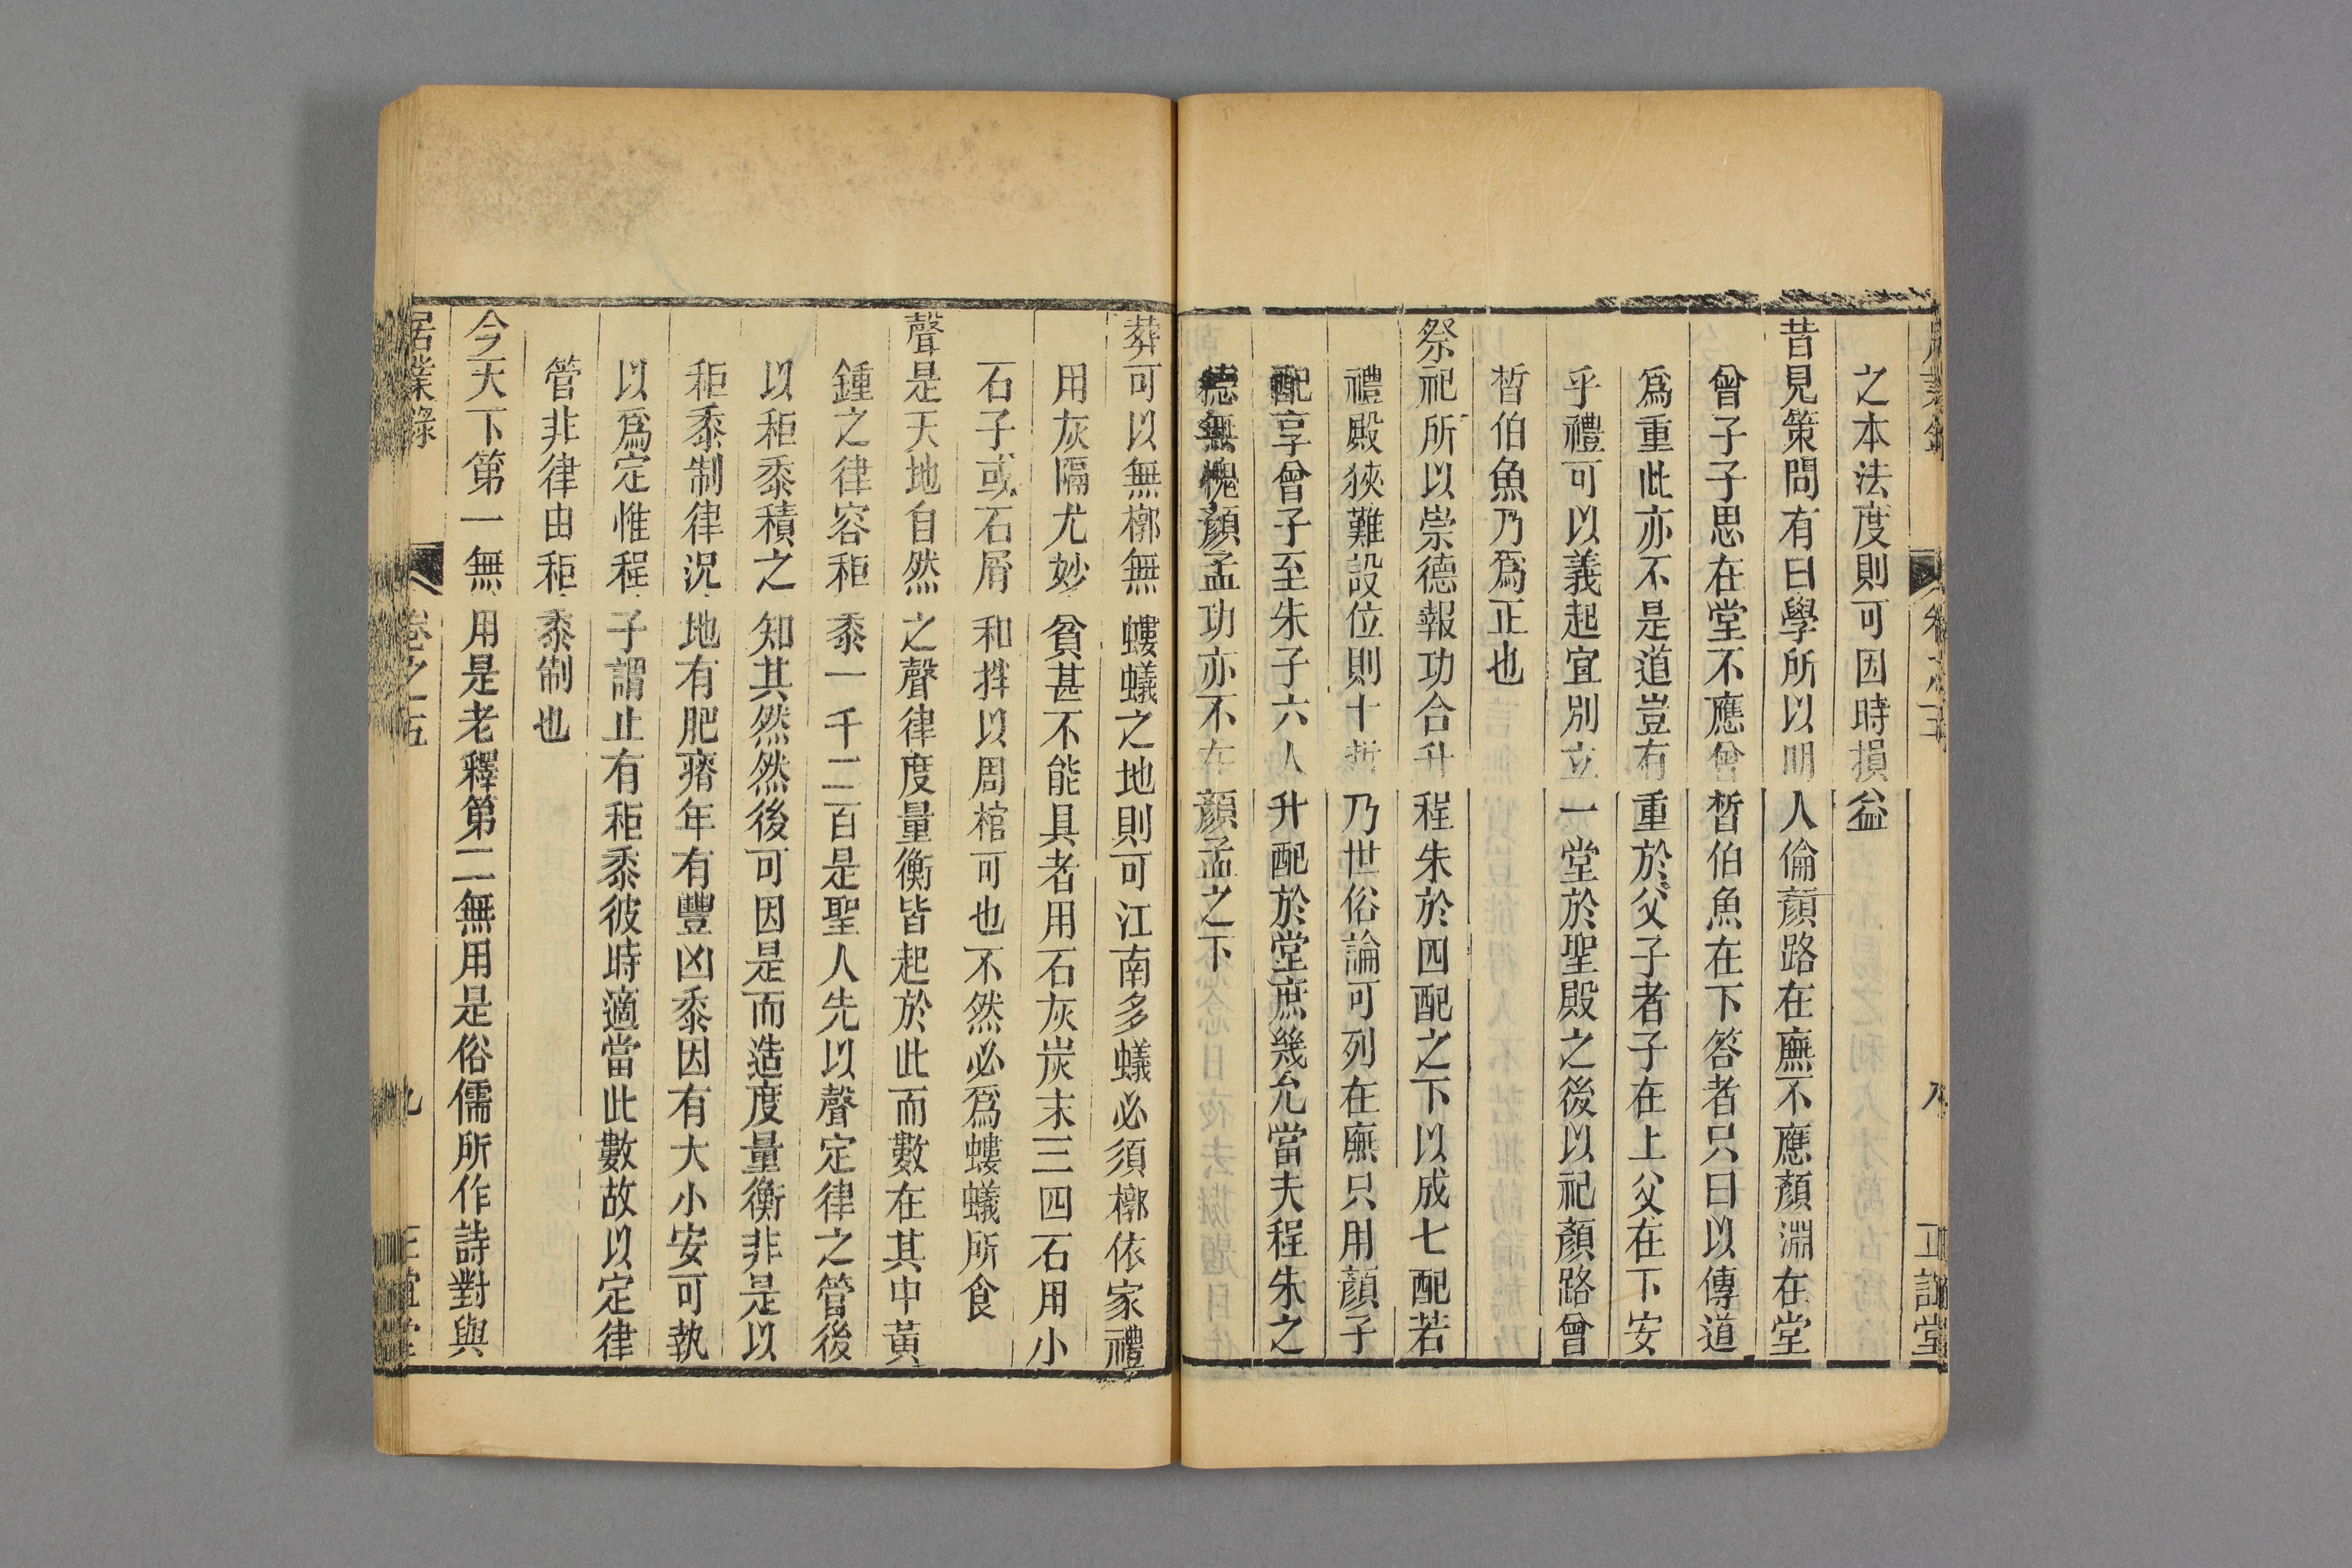 之本法度則可因時損益
昔見策問有曰學所以明人倫顏路在廡不應顏淵在堂
曾子子思在堂不應曾晳伯魚在下答者只曰以傳道
爲重此亦不是道豈有重於父子者子在上父在下安
乎禮可以義起宜別立一堂於聖殿之後以祀顏路曾
晳伯魚乃爲正也
祭祀所以崇德報功合升程朱於四配之下以成七配若
禮殿狹難設位則十哲乃世俗論可列在廡只用顏子
配享曾子至朱子六人升配於堂庶幾允當夫程朱之
德無愧顏孟功亦不在顏孟之下
葬可以無槨無螻蟻之地則可江南多蟻必須槨依家禮
用灰隔尤妙貧甚不能具者用石灰炭末三四石用小
石子或石屑和拌以周棺可也不然必爲螻蟻所食
聲是天地自然之聲律度量衡皆起於此而數在其中黃
鍾之律容秬黍一千二百是聖人先以聲定律之管後
以秬黍積之知其然然後可因是而造度量衡非是以
秬黍制律況地有肥瘠年有豐凶黍因有大小安可執
以爲定惟程子謂止有秬黍彼時適當此數故以定律
管非律由秬黍制也
今天下第一無用是老釋第二無用是俗儒所作詩對與
居業錄
卷之五
九